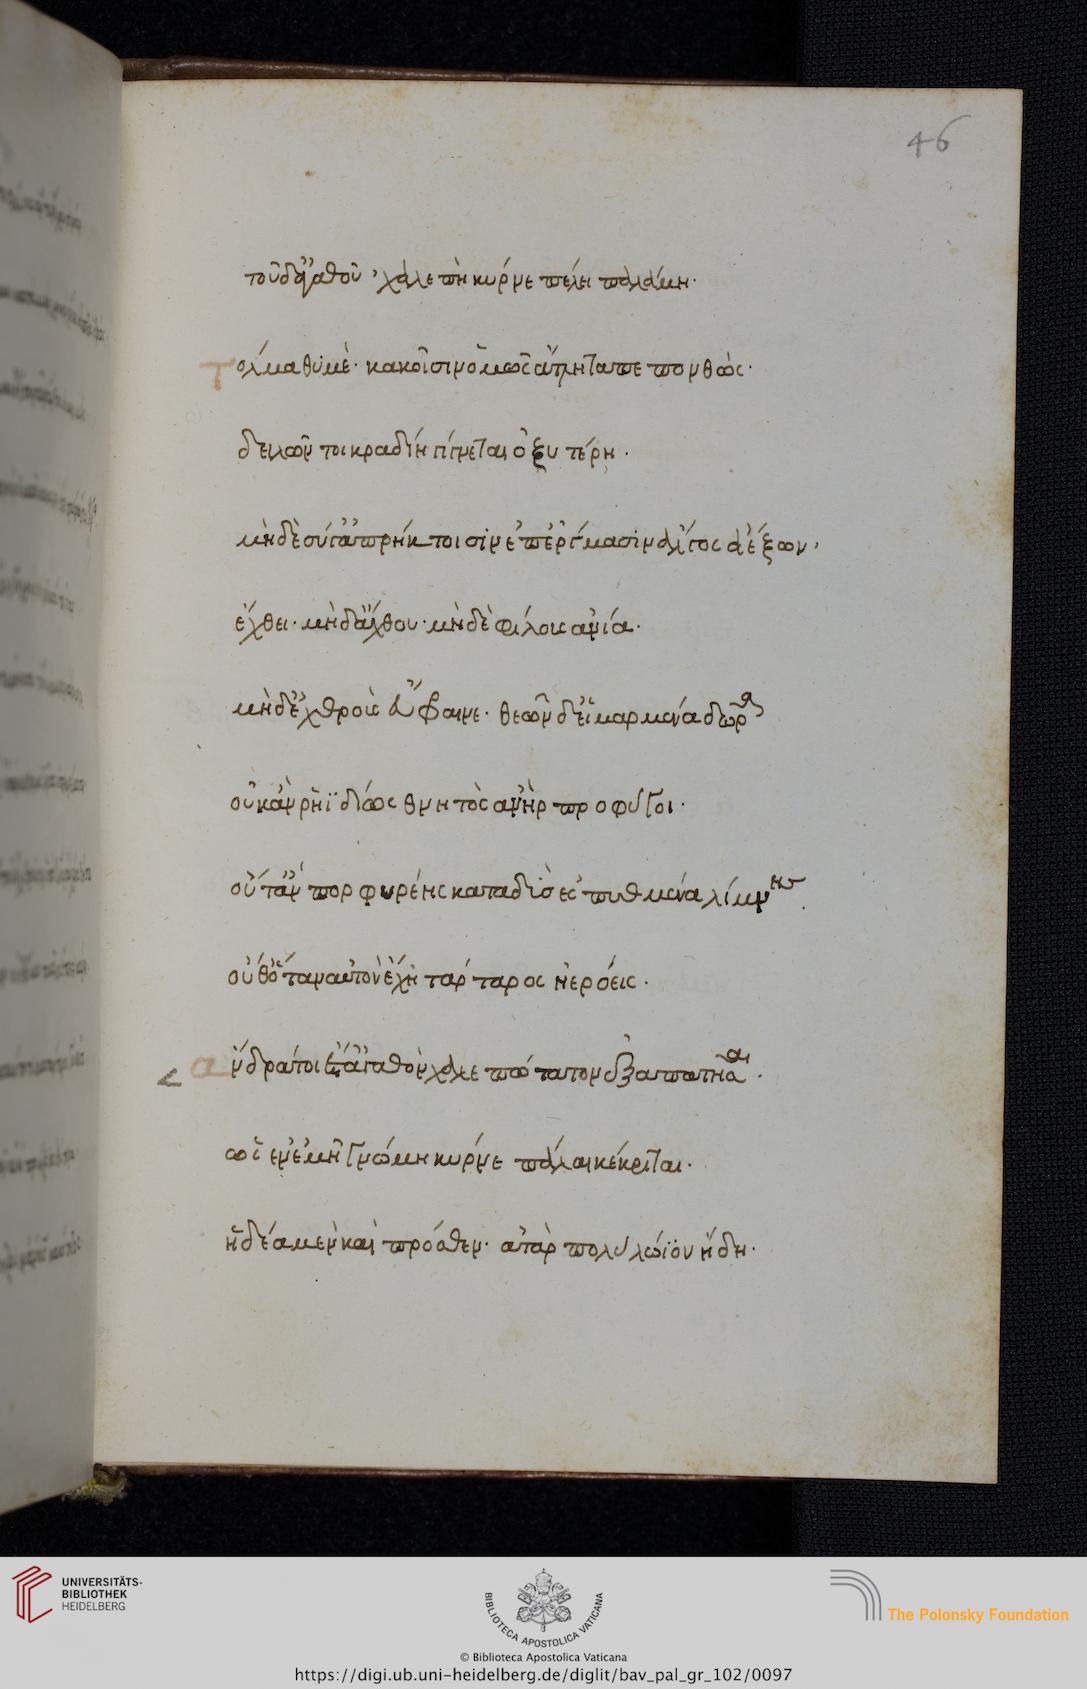 46
τοῦ δ' ἀγαθοῦ, χαλεπὴ κύρνε πέλει παλάμη·
Τόλμα θυμὲ· κακοῖσιν ὅμως ἄτλητα πεπονθὼς·
δειλῶν τοι κραδίη γίγνεται ὀξυτέρη·
μὴ δὲ σύ γ' ἀπρήκτοισιν ἐπ' ἔργμασιν ἄλγος ἀέξων,
ἔχθει· μὴ δ' ἄχθου· μὴ δὲ φίλους ἀνία·
μὴ δ' ἐχθροὺς εὔφραινε· θεῶν δ' εἱμαρμένα δῶρα
οὐκ ἂν ῥηϊδίως θνητὸς ἀνὴρ προφύγοι·
οὔτ' ἂν πορφυρέης καταδὺς ἐς πυθμένα λίμνης
οὔθ' ὅταν αὐτὸν ἔχη τάρταρος ἠερόεις·
Ἄνδρά τοι ἔστ' ἀγαθὸν χαλεπώτατον ἐξαπατῆσαι·
ὡς ἐν ἐμῆ γνώμη κύρνε πάλαι κέκριται·
ἤδεα μὲν καὶ πρόσθεν· ἀτὰρ πολὺ λώϊον ἤδη·
UNIVERSITÄTS-
BIBLIOTHEK
HEIDELBERG
BIBLIOTECA APOSTOLICA VATICANA
The Polonsky Foundation
© Biblioteca Apostolica Vaticana
https://digi.ub.uni-heidelberg.de/diglit/bav_pal_gr_102/0097